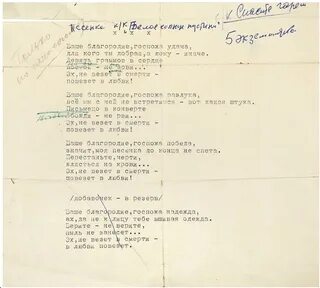 Песенка к/к "Белое солнце пустыни"
5 экземпляров
Ваше благородие, госпожа удача,
для кого ты добрая, а кому - иначе.
Девять граммов в сердце
постой - не зови...
Эх, не везет в смерти -
повезет в любви!
Ваше благородие, госпожа разлука,
всё мы с ней не встретимся - вот какая штука.
Письмецо в конверте
погоди - не рви...
Эх, не везет в смерти -
повезет в любви!
Ваше благородие, госпожа победа,
значит, моя песенка до конца не спета.
Перестаньте, черти,
клясться на крови...
Эх, не везет в смерти -
повезет в любви!
/добавочек - в резерв/
Ваше благородие, госпожа надежда,
ах, да не к лицу тебе одежда.
Берите - не верите,
не заносит...
Эх, не везет в смерти -
в любви повезет.